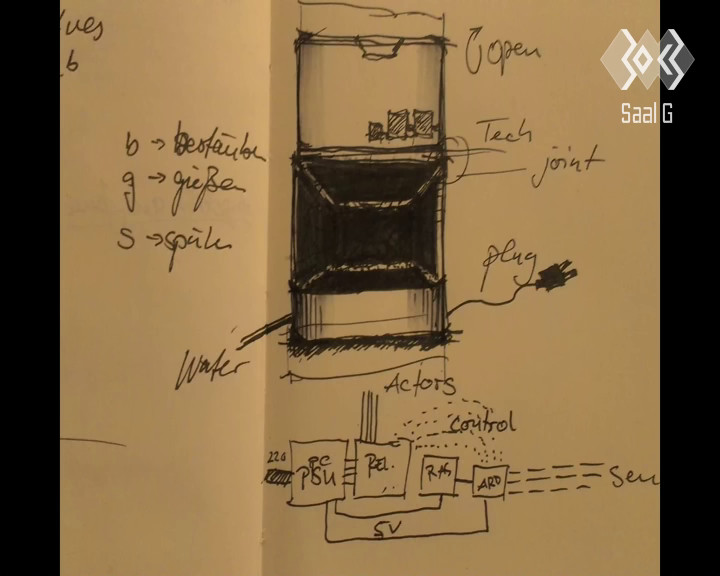 b
b → bestäuben
g → gießen
s → spülen
open
Tech
joint
plug
Water
Actors
control
220
PC
PSU
REL.
RAS
ARD
5V
Sen
Saal G